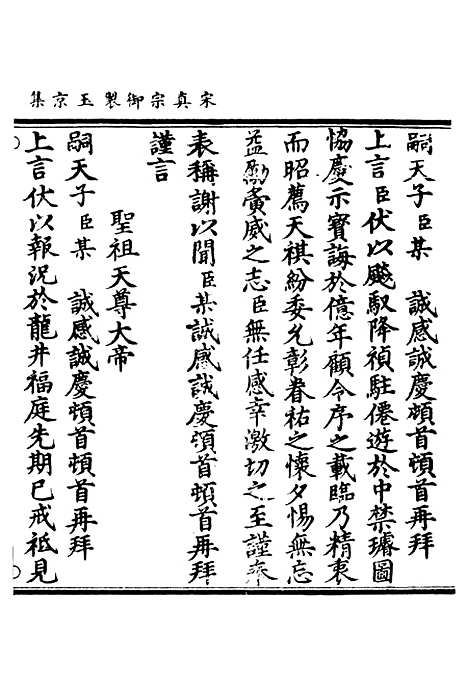 宋真宗御製玉京集
嗣天子臣某　誠感誠慶頓首頓首再拜
上言臣伏以飇馭降禎駐僊遊於中禁璿圖
協慶示寶誨於億年顧令序之載臨乃精衷
而昭薦天祺紛委允彰眷祐之懷夕惕無忘
益勵賓威之志臣無任感幸激切之至謹奉
表稱謝以聞臣某誠感誠慶頓首頓首再拜
謹言
聖祖天尊大帝
嗣天子臣某　誠感誠慶頓首頓首再拜
上言伏以報況於龍井福庭先期已戒祗見